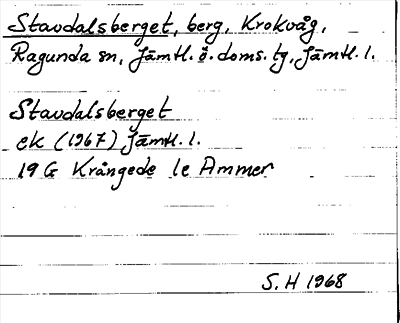 Stavdalsberget, berg, Krokvåg,
Ragunda sn, Jämtl. ö. doms. tg, Jämtl. l.
Stavdalsberget
ek (1967) Jämtl. l.
19 G Krångede 1e Ammer
S. H 1968